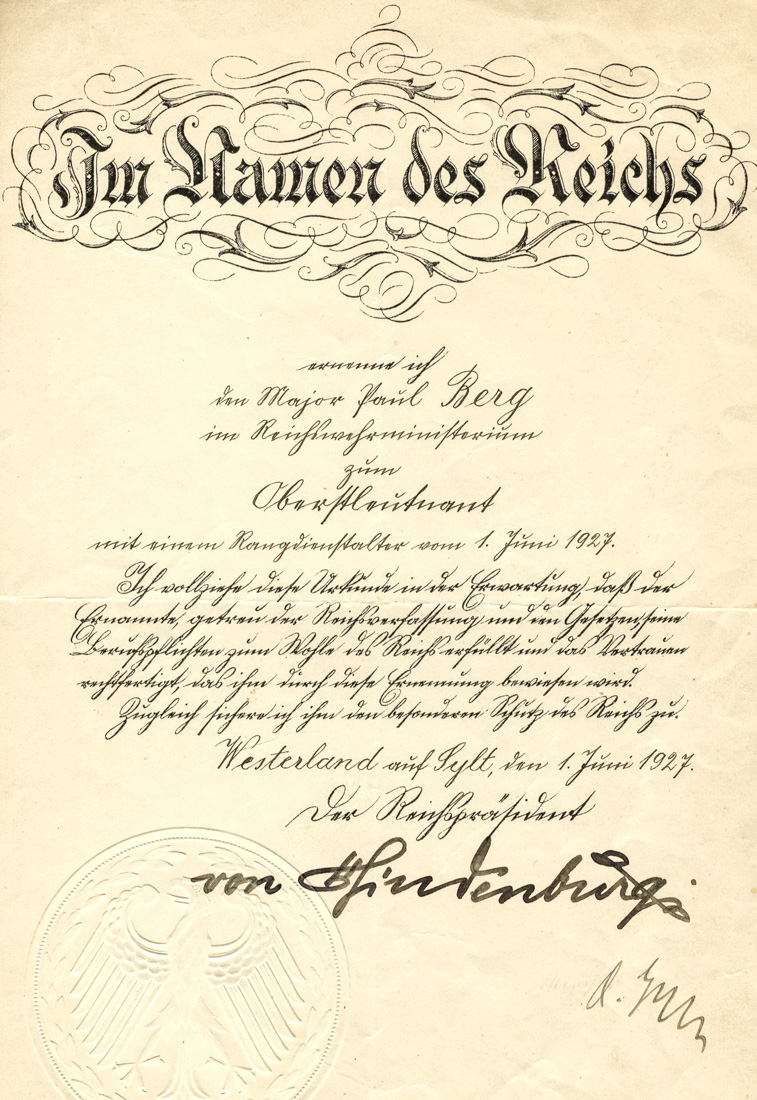 Im Namen des Reichs
ernenne ich
den Major Paul Berg
im Reichswehrministerium
zum
Oberstleutnant
mit einem Rangdienstalter vom 1. Juni 1927.
Ich vollziehe diese Urkunde in der Erwartung, daß der
Ernannte, getreu der Reichsverfassung und den Gesetzen, seine
Berufspflichten zum Wohle des Reichs erfüllt und das Vertrauen
rechtfertigt, das ihm durch diese Ernennung bewiesen wird.
Zugleich sichere ich ihm den besonderen Schutz des Reichs zu.
Westerland auf Sylt, den 1. Juni 1927.
Der Reichspräsident
von Hindenburg